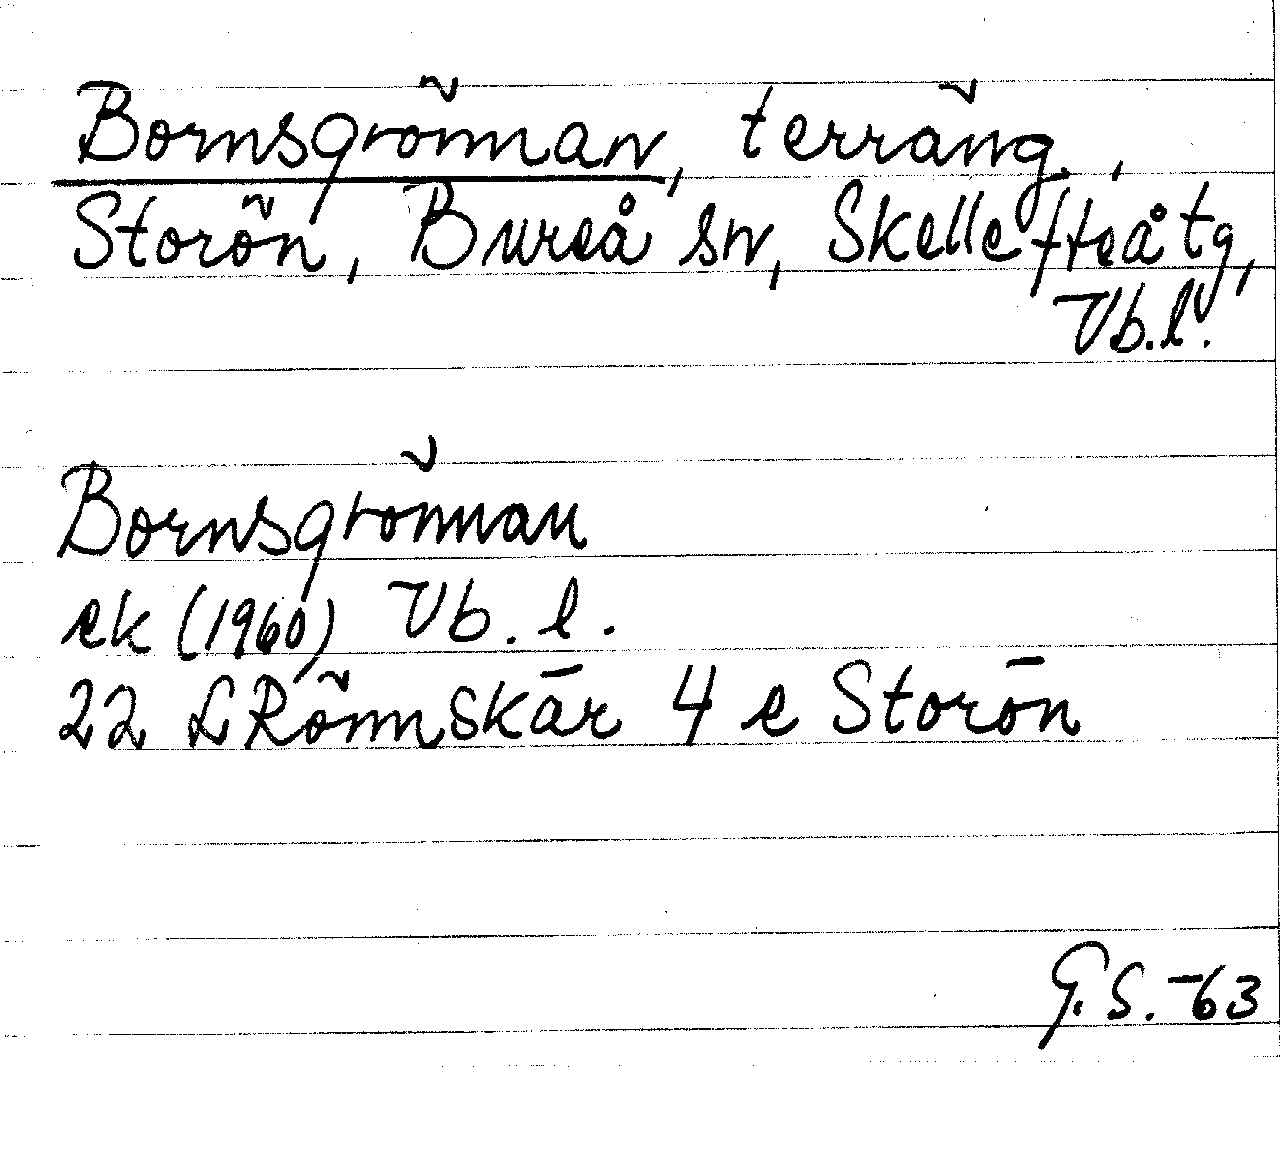 Bornsgrönnan, terräng,
Storön, Bureå sn, Skellefteå tg,
Vb.l.
Bornsgrönnan
ek (1960) Vb. l.
22 L Rönnskär 4 e Storön
G.S. -63